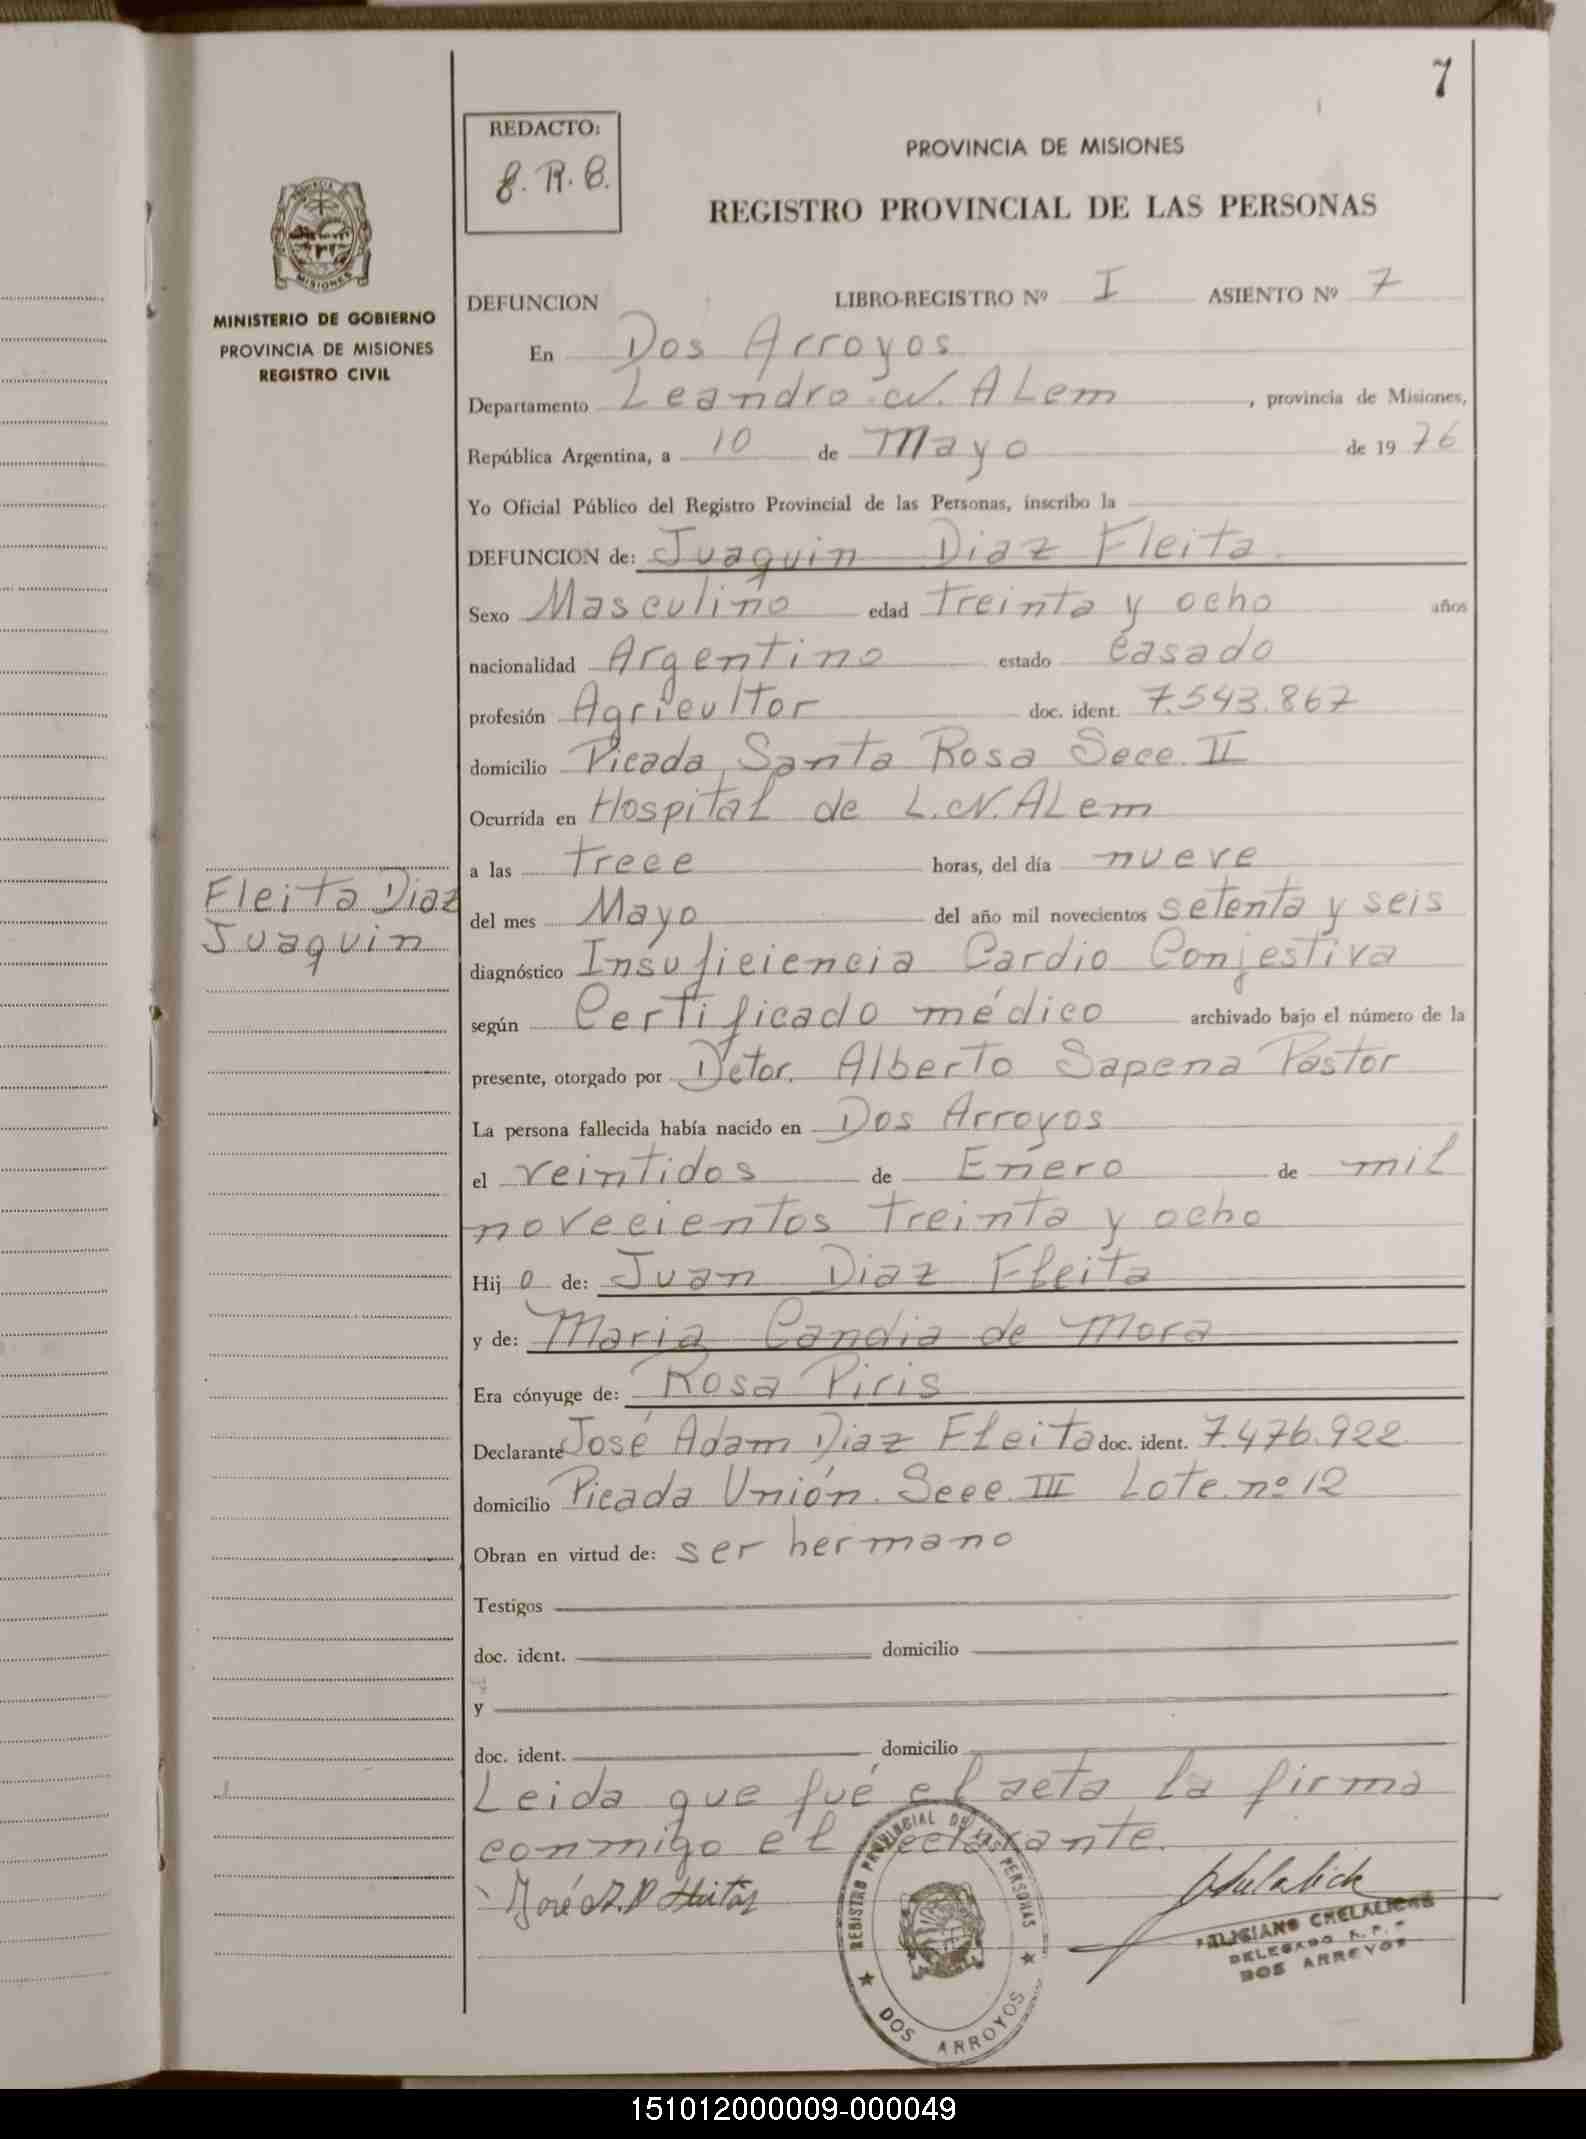 7
REDACTO:
PROVINCIA DE MISIONES
REGISTRO PROVINCIAL DE LAS PERSONAS
MINISTERIO DE GOBIERNO
PROVINCIA DE MISIONES
REGISTRO CIVIL
DEFUNCION LIBRO-REGISTRO Nº I ASIENTO Nº 7
En Dos Arroyos
Departamento Leandro N. ALem, provincia de Misiones,
República Argentina, a 10 de Mayo de 1976
Yo Oficial Público del Registro Provincial de las Personas, inscribo la
DEFUNCION de: Juaquin Diaz Fleita
Sexo Masculino edad Treinta y ocho años
nacionalidad Argentino estado Casado
profesión Agricultor doc. ident. 7.543.867
domicilio Picada Santa Rosa Secc. II
Ocurrida en Hospital de L.N. ALem
a las Trece horas, del día nueve
Fleita Diaz
Juaquin
del mes Mayo del año mil novecientos setenta y seis
diagnóstico Insuficiencia Cardio Conjestiva
según Certificado médico archivado bajo el número de la
presente, otorgado por Dctor. Alberto Sapena Pastor
La persona fallecida había nacido en Dos Arroyos
el veintidos de Enero de mil
novecientos Treinta y ocho
Hijo de: Juan Diaz Fleita
y de: Maria Candia de Mora
Era cónyuge de: Rosa Piris
Declarante José Adam Diaz Fleita doc. ident. 7.476.922
domicilio Picada Unión Secc. III Lote nº 12
Obran en virtud de: ser hermano
Testigos
doc. ident. domicilio
y
doc. ident. domicilio
Leida que fué el acta la firma
conmigo el declarante.
José A. D Fleitas
REGISTRO PROVINCIAL DE LAS PERSONAS
DOS ARROYOS
FELICIANO CHELALICHE
DELEGADO R. P. P
DOS ARROYOS
151012000009-000049